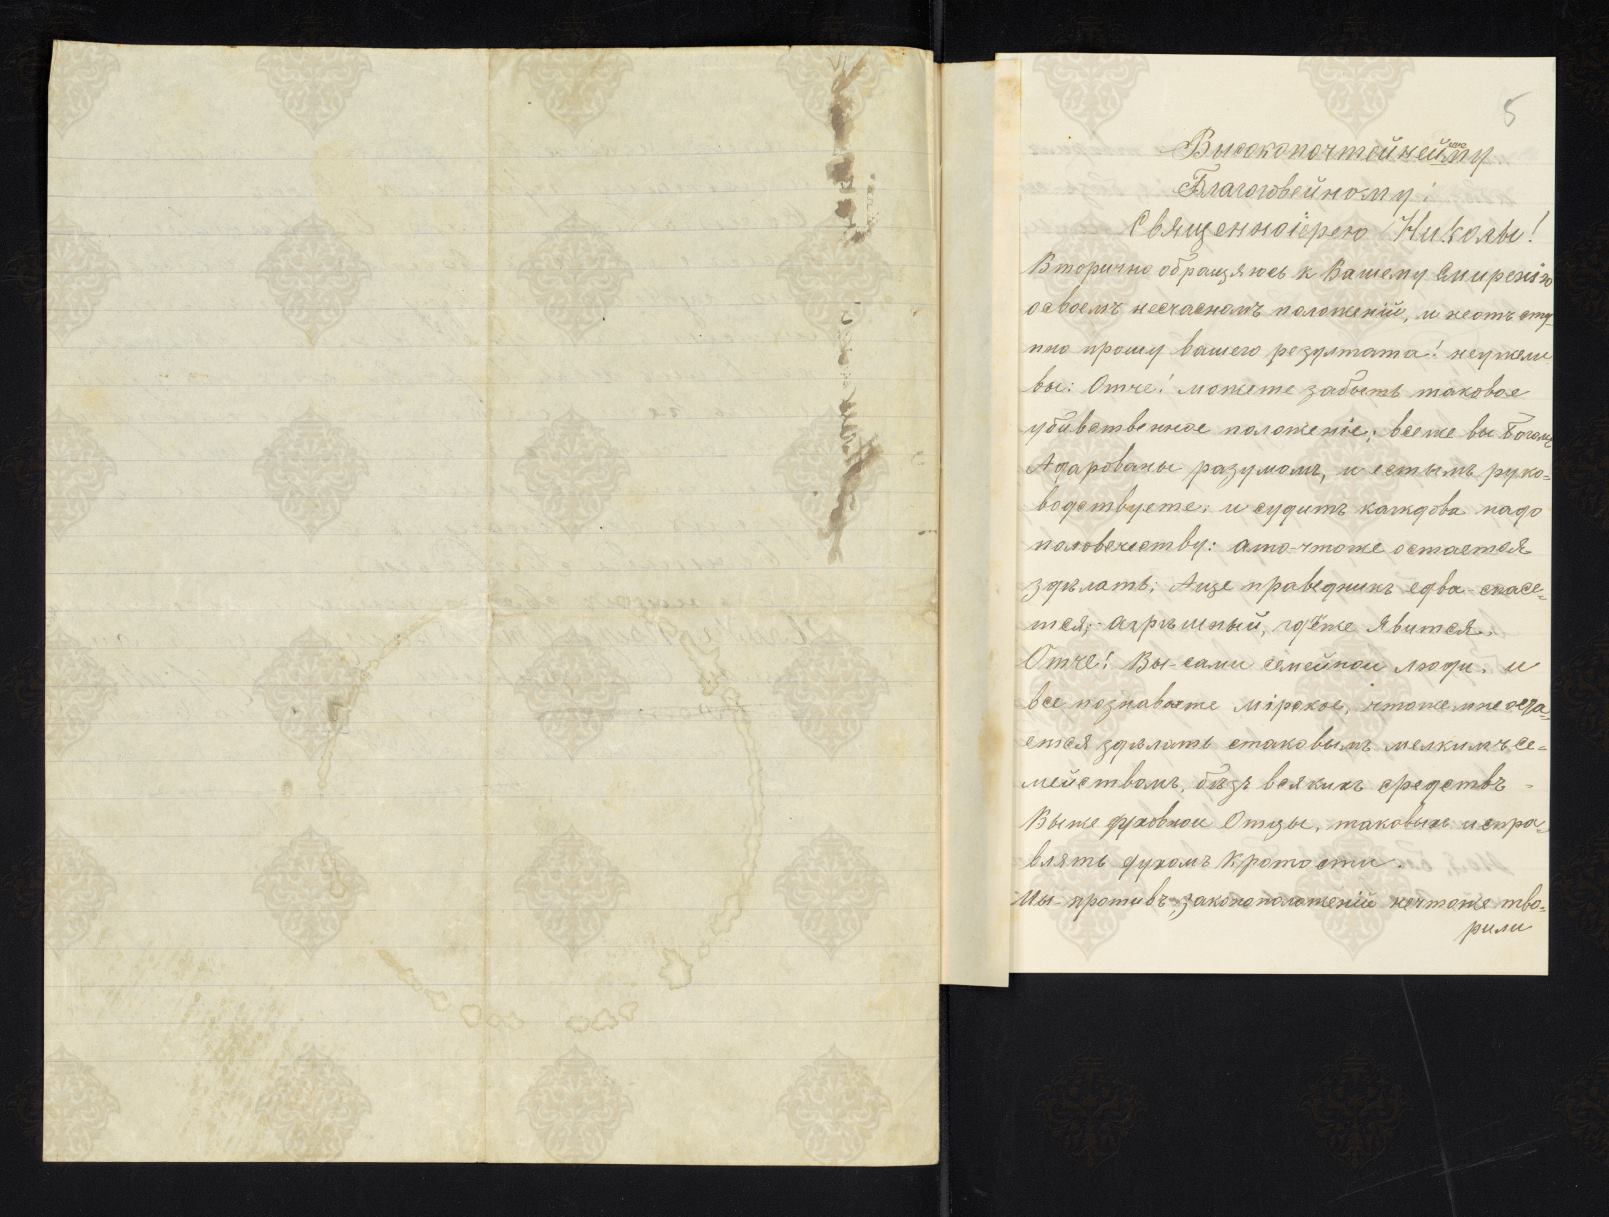 5
Высокопочтойнейшему
Благоговейному:
Священноіерею Николы!
Вторично обращяюсь к Вашему Смиренію
освоемъ несчасномъ положеній, и неотъсту-
пно прошу вашего резултата! неужели
вы: Отче! можете забыть таковое
убивственное положеніе; всеже вы Богомъ
Адарованы разумомъ, и естымъ руко=
водствуете. и судить каждова надо
половечеству: ато-чтоже остается
здѣлать; Аще праведникъ едва-спасе=
тся; Агрѣшный, гдѣже Явится.
Отче! Вы-сами семейнои люди. и
все познаваете мірское, чтоже мне оста-
ется здѣлать стаковымъ мелкимъ се=
мействомъ, бѣзъ всякихъ средствъ -
Выже духовнои Отцы, таковыхъ испра-
влять духомъ Кротости.
Мы-противъ законоположеній нечтоже тво=
рили